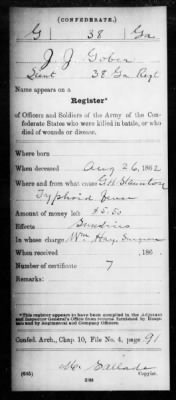 (CONFEDERATE.)
G 38 Ga
J J Gober
Lieut 38 Ga Regt
Name appears on a
Register*
of Officers and Soldiers of the Army of the Con-
federate States who were killed in battle, or who
died of wounds or disease.
Where born
When deceased Aug 26, 1862
Where and from what cause G.H. Staunton
Typhoid Fever
Amount of money left $5.50
Effects Sundries
In whose charge Wm Hay, Surgeon
When received , 186 .
Number of certificate 7
Remarks:
*This register appears to have been compiled in the Adjutant
and Inspector General's Office from returns furnished by Hospi-
tals and by Regimental and Company Officers.
Confed. Arch., Chap. 10, File No. 4, page 91
(635) Copyist.